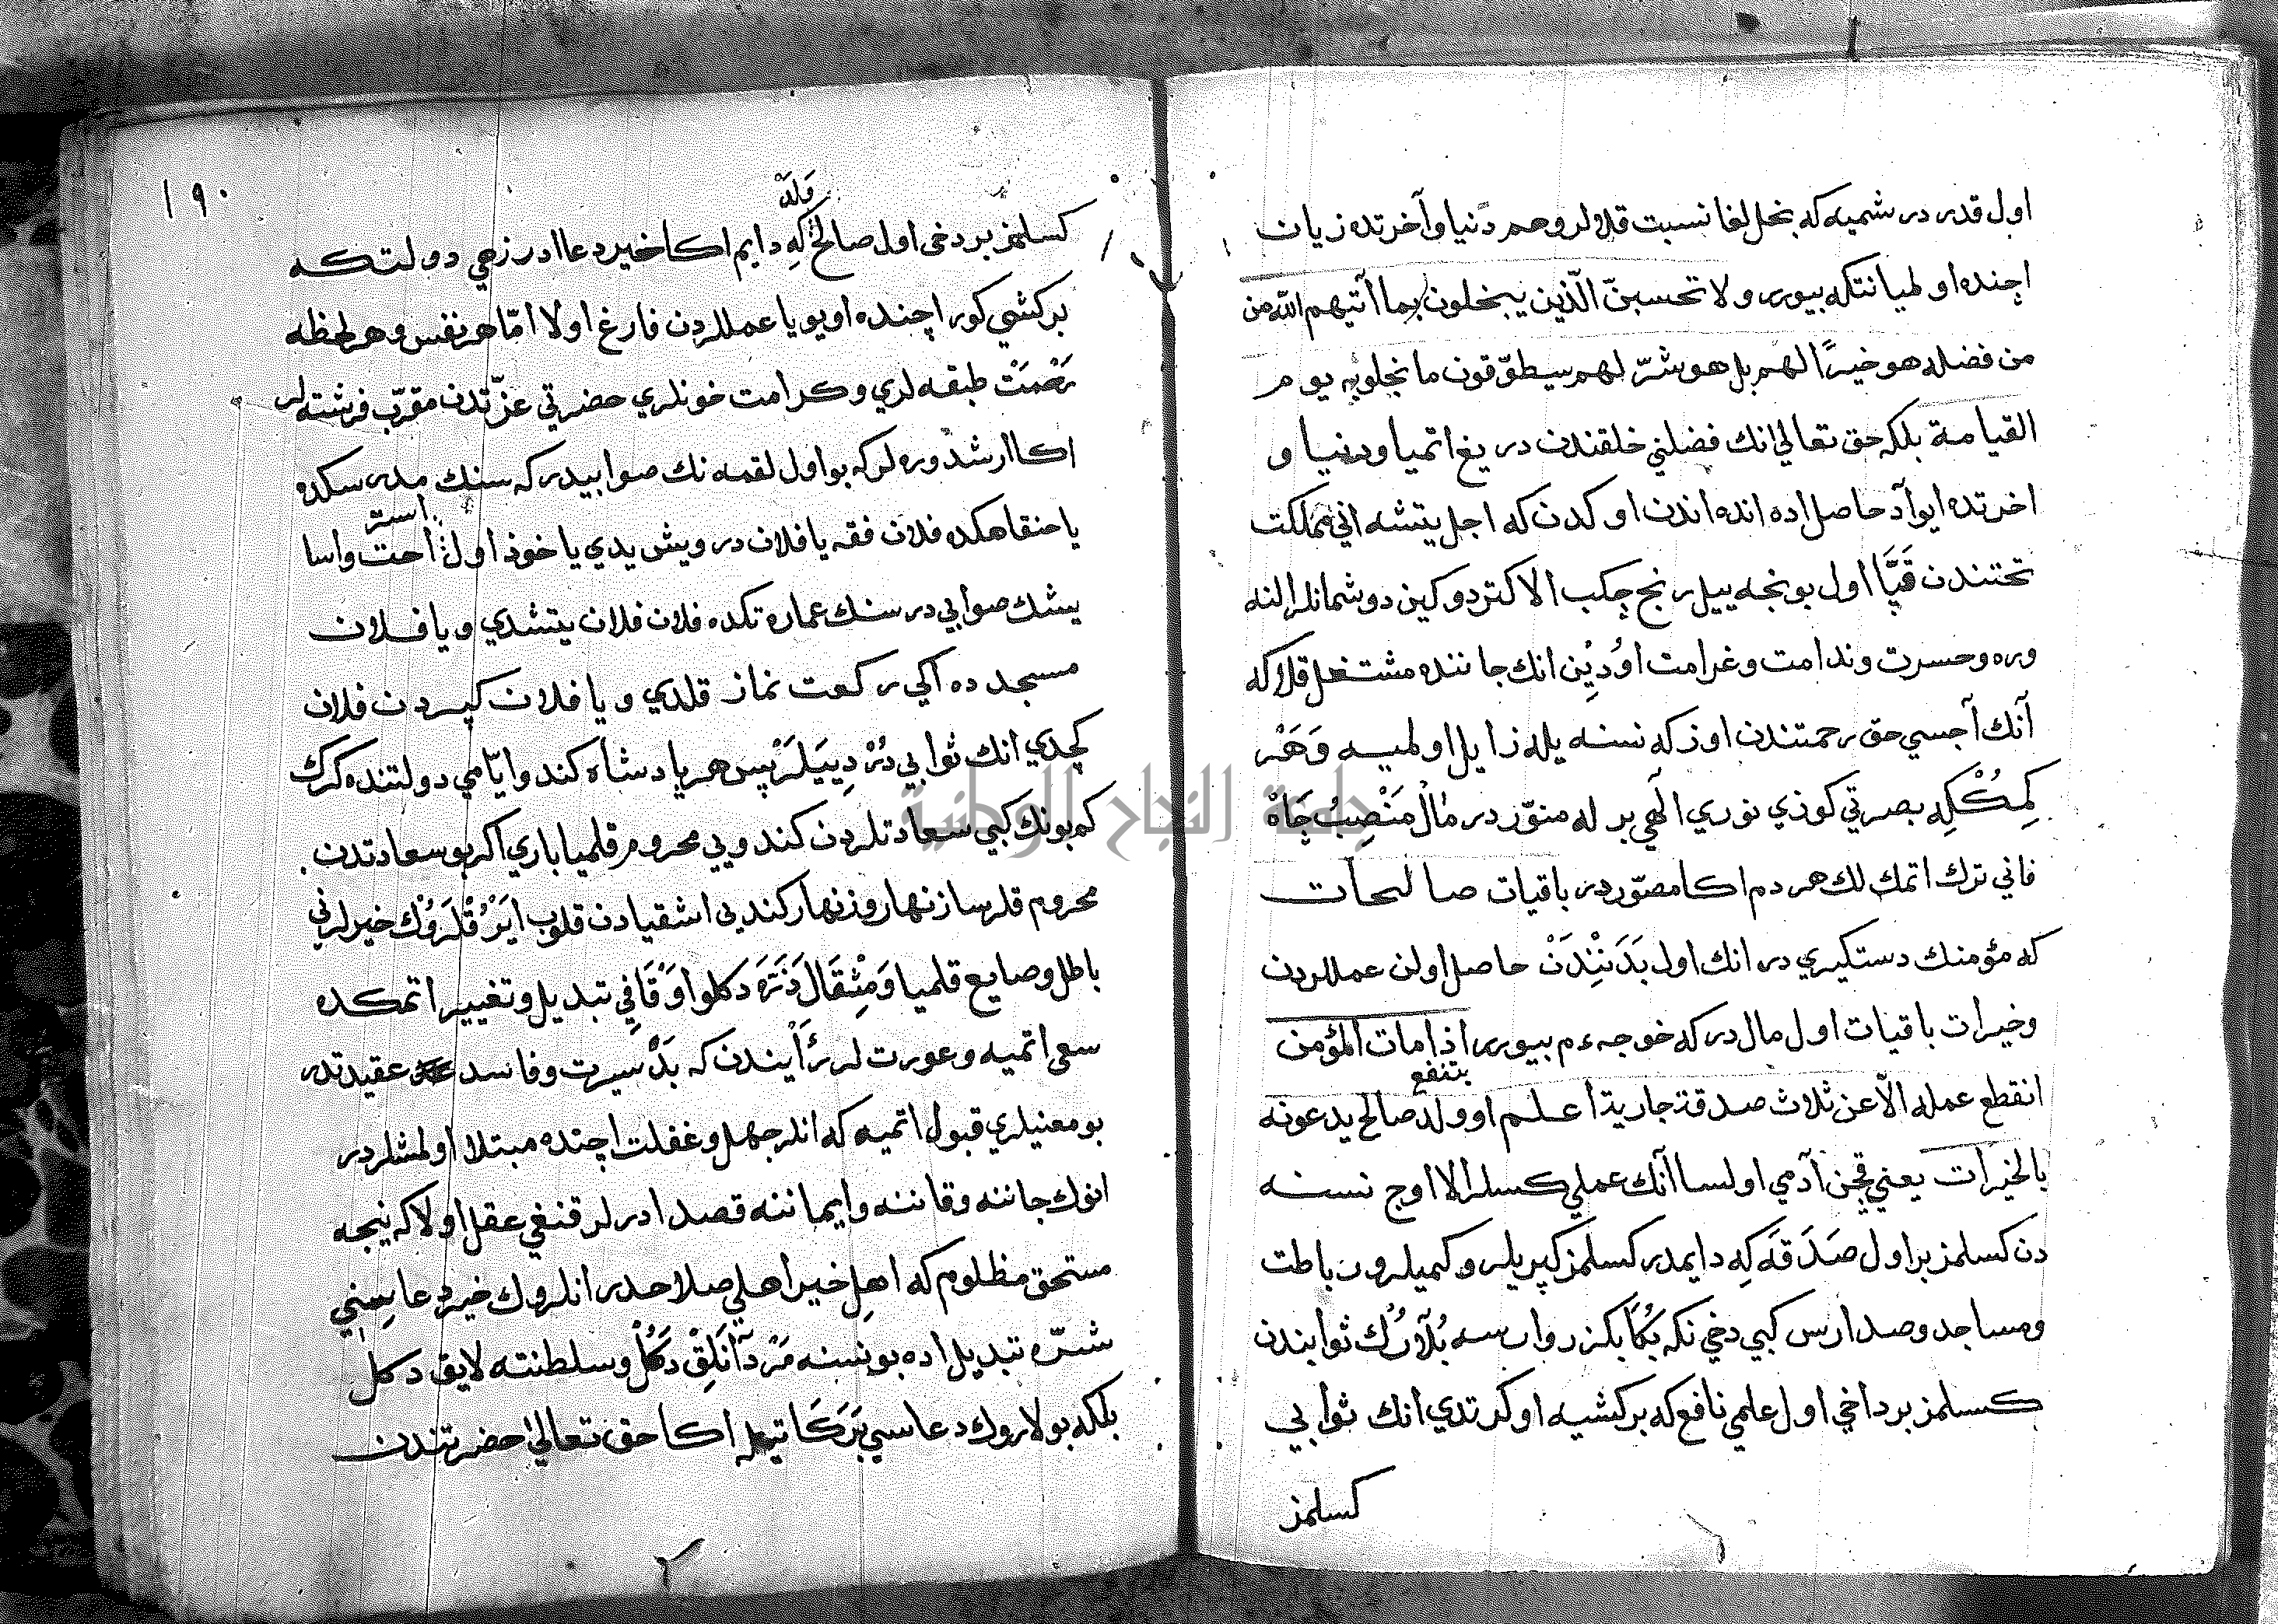 اول قدر در شميه كه بخل لغا نسبت قلالر وهم دنيا وآخرتده زيان
اچنده اولميا نتكه بيورر ولا تحسبنّ الّذين يبخلون بما آتيهم الله من
من فضله هو خيرًا لهم بل هو شرّ لهم سيطوّقون ما بخلو به يوم
القيامة بلكه حق تعالي انك فضلني خلقندن دريغ اتميا ودنيا و
اخرتده ايو آد حاصل اده انده اندن اوكدن كه اجل يتشه اني مملكت
تختندن قَپَا اول بونجه ييل رنج چكب الاكتردوكين دوشمانلر النه
وره وحسرت وندامت وغرامت اوُدين انك جاننده مشتعل قلالر كه
آنك آجسي حق رحمتندن اوزكه نسنه يله زايل اولميه وَهَرْ
كِمُكْكِه بصرتي كوزي نوري الهي بر له منوّر در مَالْ مَنْصِبْ جَاهْ
فاني ترك اتمك لك هر دم اكا مصوّر در باقيات صالحات
كه مؤمنك دستكيري در انك اول بَدَنِنْدَنْ حاصل اولن عمللردن
وخيرات باقيات اول مال در كه خوجه ءم بيورر اذا مات المؤمن
ينتفع
انقطع عمله الاّ عن ثلاث صدقة جارية اعلم او ولد صالح يدعونه
بالخيرات يعني قچن آدمي اولسا آنك عملي كسلر الا اوج نسنه
دن كسلمز بر اول صَدَقَه كِه دايمدر كسلمز كپريلر وكميلر ون باطت
ومساجد وصدارس كبي دخي نكه بُكَا بكزر وارسه بُلَارُك ثوابندن
كسلمز بر داخي اول علمي نافع كه بر كشيه اوكرتدي انك ثوابي
كسلمز
١٩٠
وَلَدْ
كسلمز بر دخي اول صالح كِه دايم اكا خير دعا ادر زهي دولتكه
بر كشي كور اچنده اويويا عمللردن فارغ اولا امّا هر نفس وهر لحظه
رَحْمَتْ طبقه لري وكرامت خونلري حضرتي عزّتدن مقرّب فرشته لر
اكا ارشدوره لر كه بو اول لقمه نك صوابيدر كه سنك مدرسكده
استر
يا حنقاهكده فلان فقه يا فلان درويش يدي يا خوذ اول احت واسا
يشك صوابي در سنك عمارتكده فلان فلان يتشدي ويا فلان
مسجده اكي ركعت نماز قلدي ويا فلان كپردن فلان
كچدي انك ثوابي دُرْ دِيَيَلَرْ پس هر پادشاه كند وايّامي دولتنده كرك
كم بونك كبي سعادتلردن كندويي محروم قلميا باري اكر بو سعادتدن
محروم قلرسا زنهار وزنهار كندبي اشقيادن قلوب ايَرْ قُلَرْوُك خيرلرني
باطل وصايع قلميا وَمِثْقَالَ ذَرَه دكلو اَوْقَافِي تبديل وتغيير اتمكده
سعي اتميه وعورت لر رَأيندن كه بَدْ سيرت وفاسد عقيدتدر
بو معنيلري قبول اتميه كه انلر جهل وغفلت اچنده مبتلا اولمشلردر
انوك جاننه وقاننه وايماننه قصد ادرلر قنغي عقل اولا كه نيجه
مستحق مظلوم كه اهل خير اهلي صلاحدر انلروك خير دعاسني
شرّه تبديل اده بو نسنه مَرْدَانَلِقْ دَكُلْ وسلطنته لايق دكل
بلكه بولاروك دعاسي بَرَكَاتيله اكا حق تعالي حضرتندن